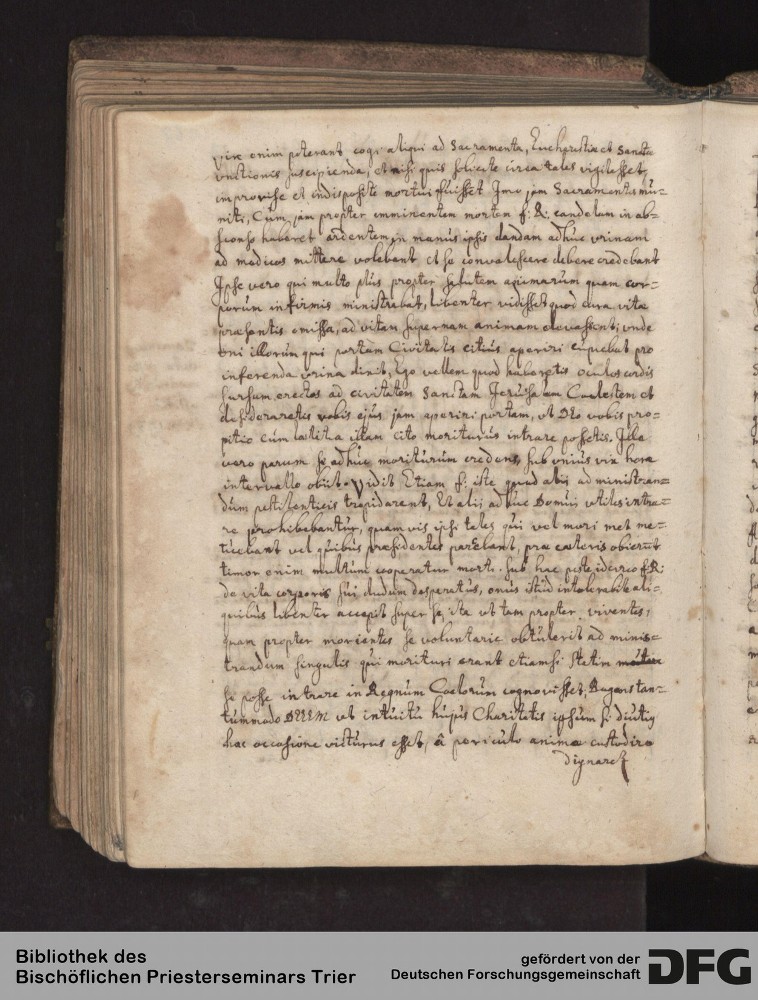 vix enim poterant cogi aliqui ad Sacramenta, Eucharistiae et Sanctae
unctionis suscipienda, et nisi quis solicite circa tales vigilasset,
improvise et indisposite mortui fuissent Imo jam Sacramentis mu=
niti, Cum jam propter imminentem mortem f: R: candelam in ab=
sconso haberet ardentem in manus ipsis dandam adhuc urinam
ad medicos mittere volebant et se convalescere debere credebant
Ipse vero qui multo plus propter salutem animarum quam cor=
porum infirmis ministrabat, libenter vidisset quod cura vitae
praesentis omissa, ad vitam supernam animam elevassent; unde
uni illorum qui portam Civitatis citius aperiri cupiebat pro
inferenda urina dixit, Ego vellem quod haberetis oculos cordis
sursum erectos ad civitatem Sanctam Jerusalem Coelestem et
desideraretis vobis ejus jam aperiri portam, ut DEo vobis pro=
pitio cum laetitia illam cito moriturus intrare possetis. Ille
vero parum se adhuc moriturum credens, sub unius vix hora
intervallo obiit. Vidit Etiam f: iste quod alij ad ministran=
dum pestilenticis trepidarent, Et alij adhuc Domui utiles intra=
re prohibebantur, quamvis ipsi tales qui vel mori met me=
tuebant vel quibus praesidentes parcebant, prae caeteris obierunt
timor enim multum cooperatur morti. Sub hac peste idcirco f: R:
de vita corporis sui dudum desperatus, onus istud intolerabile ali=
quibus libenter accepit super se, ita ut tam propter viventes,
quam propter morientes se voluntarie obtulerit ad minis=
trandum singulis qui morituri erant etiamsi statim
se posse intrare in Regnum Coelorum cognovisset, Rogans tan=
tummodo DEUM ut intuitu hujus Charitatis ipsum si diutius
hac occasione victurus esset, â periculo animae custodire
dignaret
Bibliothek des
Bischöflichen Priesterseminars Trier
gefördert von der
Deutschen Forschungsgemeinschaft
DFG